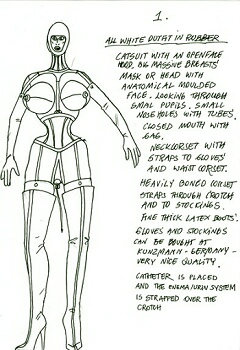 1.
ALL WHITE OUTFIT IN RUBBER
CATSUIT WITH AN OPENFACE
HOOD. BIG MASSIVE BREASTS
MASK OR HEAD WITH
ANATOMICAL MOULDED
FACE. LOOKING THROUGH
SMAL PUPILS. SMALL
NOSEHOLES WITH TUBES.
CLOSED MOUTH WITH
GAG.
NECKCORSET WITH
STRAPS TO GLOVES
AND WAIST CORSET.
HEAVILY BONED CORSET
STRAPS THROUGH CROTCH
AND TO STOCKINGS.
FINE THICK LATEX BOOTS.
GLOVES AND STOCKINGS
CAN BE BOUGHT AT
KUNZMANN - GERMANY -
VERY NICE QUALITY.
CATHETER IS PLACED
AND THE ENEMA/URIN SYSTEM
IS STRAPPED OVER THE
CROTCH